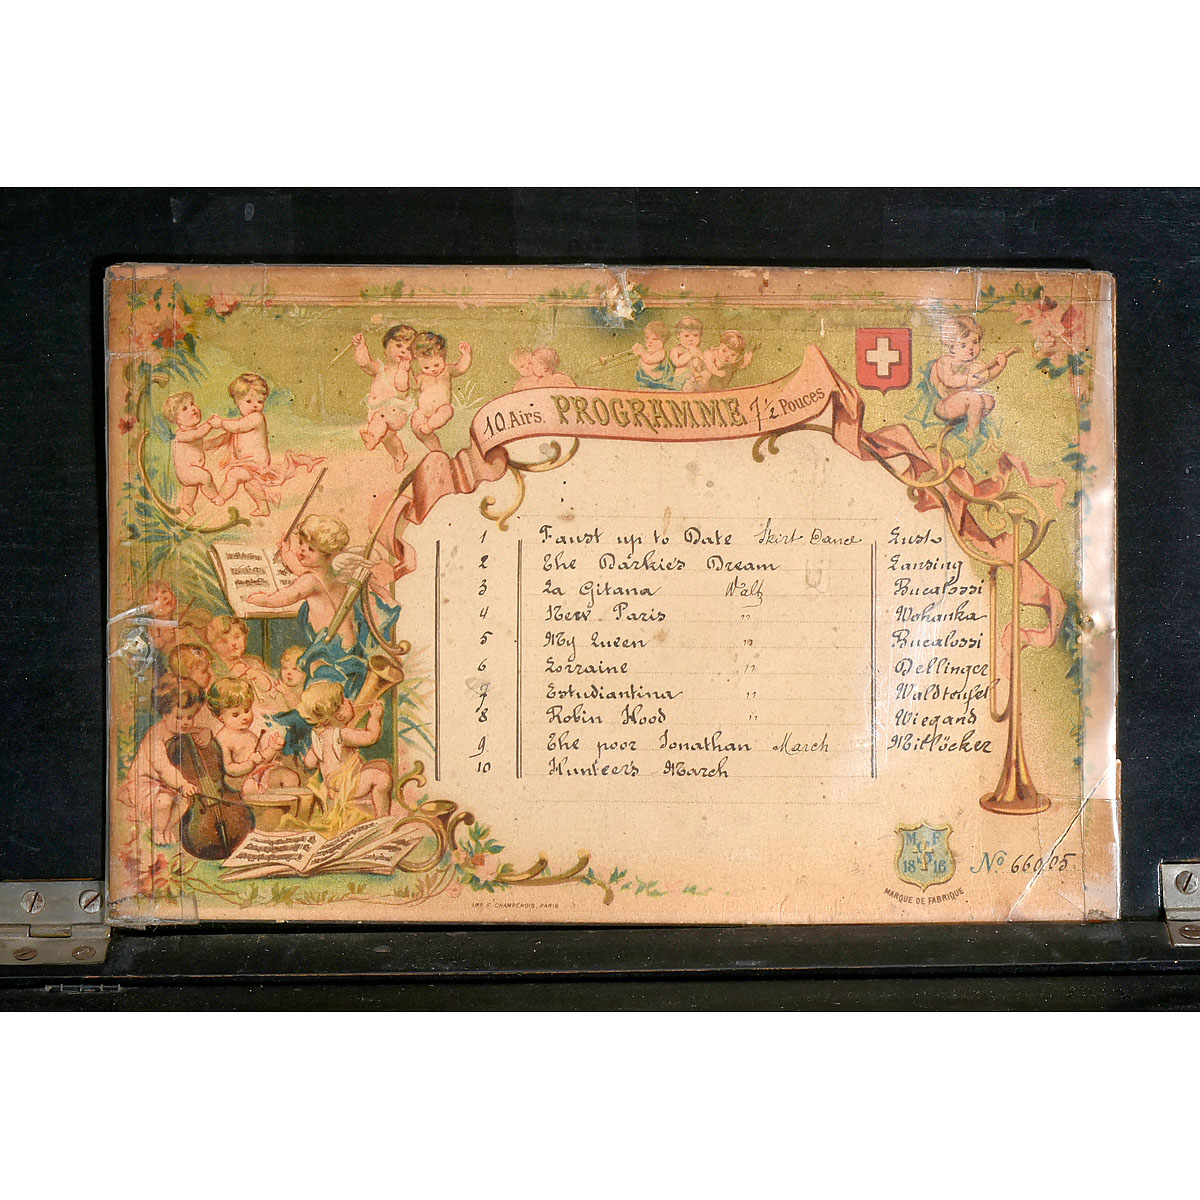 10 Airs. PROGRAMME 7 1/2 Pouces
1 Faust up to Date Skirt Dance Lusto
2 The Darkie's Dream Lansing
3 La Gitana Waltz Bucalossi
4 New Paris " Wohanka
5 My Queen " Bucalossi
6 Lorraine " Dellinger
7 Estudiantina " Waldteufel
8 Robin Hood " Wiegand
9 The poor Jonathan March Millöcker
10 Hunteer's March
M. F.
G
18 16
MARQUE DE FABRIQUE
No 66005
IMP. F. CHAMPENOIS, PARIS